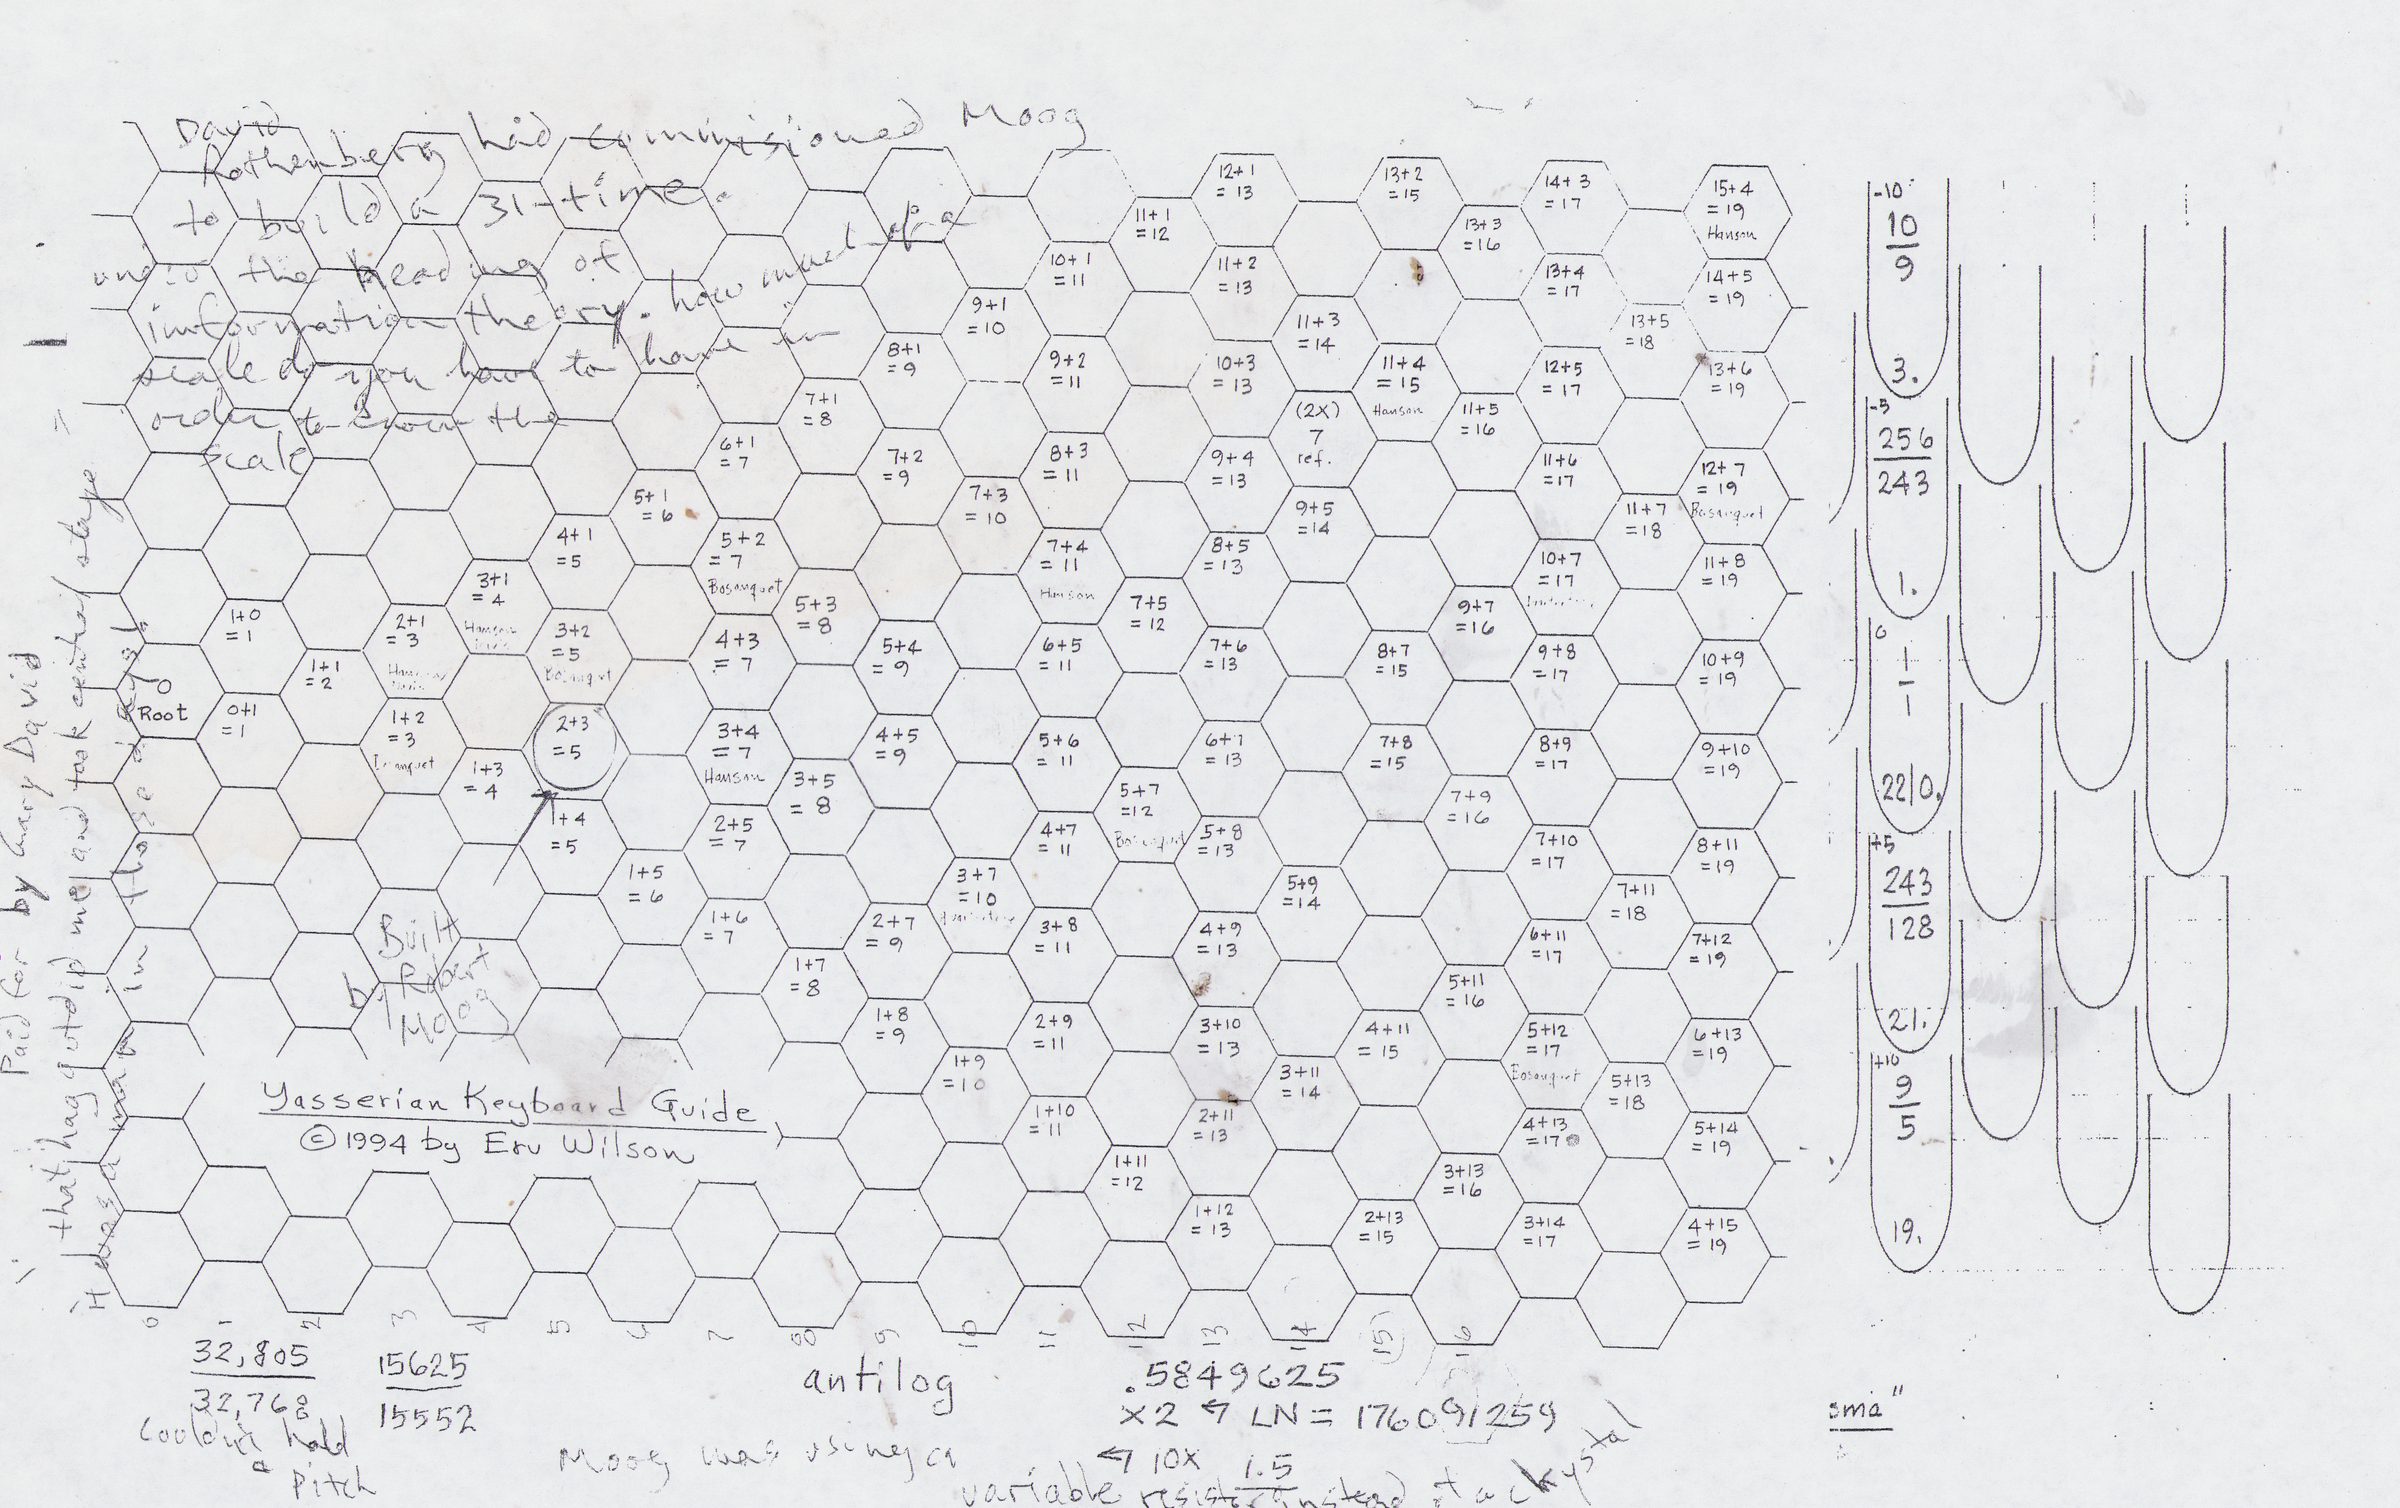 David
Rothenberg had commisioned Moog
to build a 31-tone.
under the heading of
information theory. how much of a
scale do you have to have in
order to know the
scale
12+1
= 13
13+2
= 15
14+3
= 17
15+4
= 19
Hanson
11+1
= 12
13+3
= 16
10+1
= 11
11+2
= 13
13+4
= 17
14+5
= 19
9+1
= 10
11+3
= 14
13+5
= 18
8+1
= 9
9+2
= 11
10+3
= 13
11+4
= 15
Hanson
12+5
= 17
13+6
= 19
7+1
= 8
(2x)
7
ref.
11+5
= 16
6+1
= 7
7+2
= 9
8+3
= 11
9+4
= 13
11+6
= 17
12+7
= 19
Bosanquet
5+1
= 6
7+3
= 10
9+5
= 14
11+7
= 18
4+1
= 5
5+2
= 7
Bosanquet
7+4
= 11
Hanson
8+5
= 13
10+7
= 17
11+8
= 19
3+1
= 4
Hanson
5+3
= 8
7+5
= 12
9+7
= 16
1+0
= 1
2+1
= 3
Hanson
3+2
= 5
Bosanquet
4+3
= 7
5+4
= 9
6+5
= 11
7+6
= 13
8+7
= 15
9+8
= 17
10+9
= 19
1+1
= 2
0
Root
0+1
= 1
1+2
= 3
2+3
= 5
3+4
= 7
Hanson
4+5
= 9
5+6
= 11
6+7
= 13
7+8
= 15
8+9
= 17
9+10
= 19
1+3
= 4
3+5
= 8
5+7
= 12
Bosanquet
7+9
= 16
1+4
= 5
2+5
= 7
4+7
= 11
5+8
= 13
7+10
= 17
8+11
= 19
1+5
= 6
3+7
= 10
5+9
= 14
7+11
= 18
1+6
= 7
2+7
= 9
3+8
= 11
4+9
= 13
6+11
= 17
7+12
= 19
1+7
= 8
5+11
= 16
1+8
= 9
2+9
= 11
3+10
= 13
4+11
= 15
5+12
= 17
Bosanquet
6+13
= 19
1+9
= 10
3+11
= 14
5+13
= 18
1+10
= 11
2+11
= 13
4+13
= 17
5+14
= 19
1+11
= 12
3+13
= 16
1+12
= 13
2+13
= 15
3+14
= 17
4+15
= 19
Built
by Robert
Moog
Paid for by Gary David
that hag got dip me and took central stage
it was a man in those days
Yasserian Keyboard Guide
© 1994 by Erv Wilson
0 1 2 3 4 5 6 7 8 9 10 11 12 13 14 (15) 16
32,805
32,768
15625
15552
couldn't hold
a pitch
antilog
.5849625
x2 LN = 176091259
10x 1.5
Moog was using a
variable resister instead of a crystal
-10
10
9
3.
-5
256
243
1.
0
1
1
22/0.
+5
243
128
21.
+10
9
5
19.
sma"